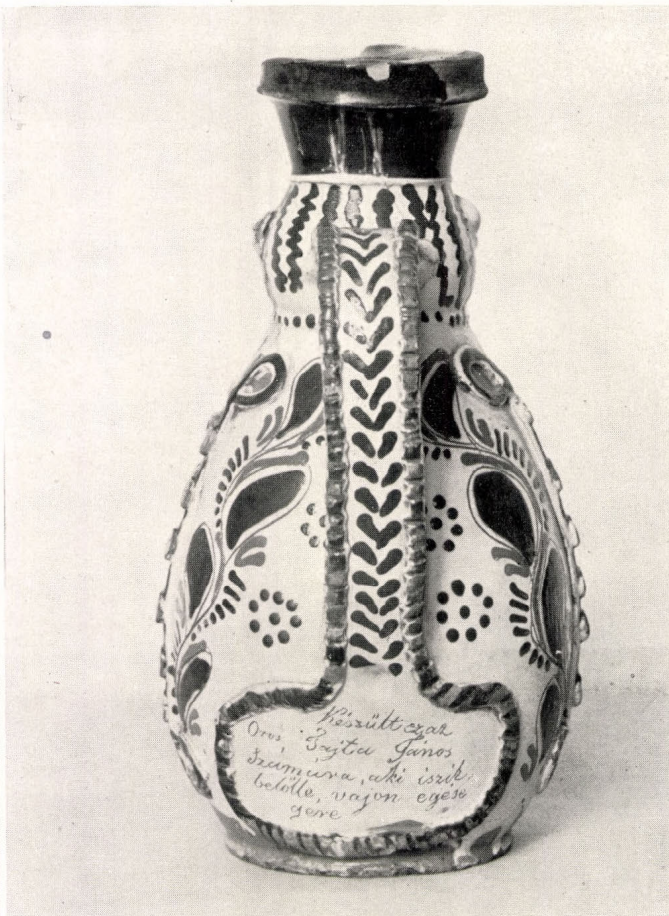 Készűlt ez az
Oros Pajta János
számára, aki iszik
belőlle, vajon egésé
gére